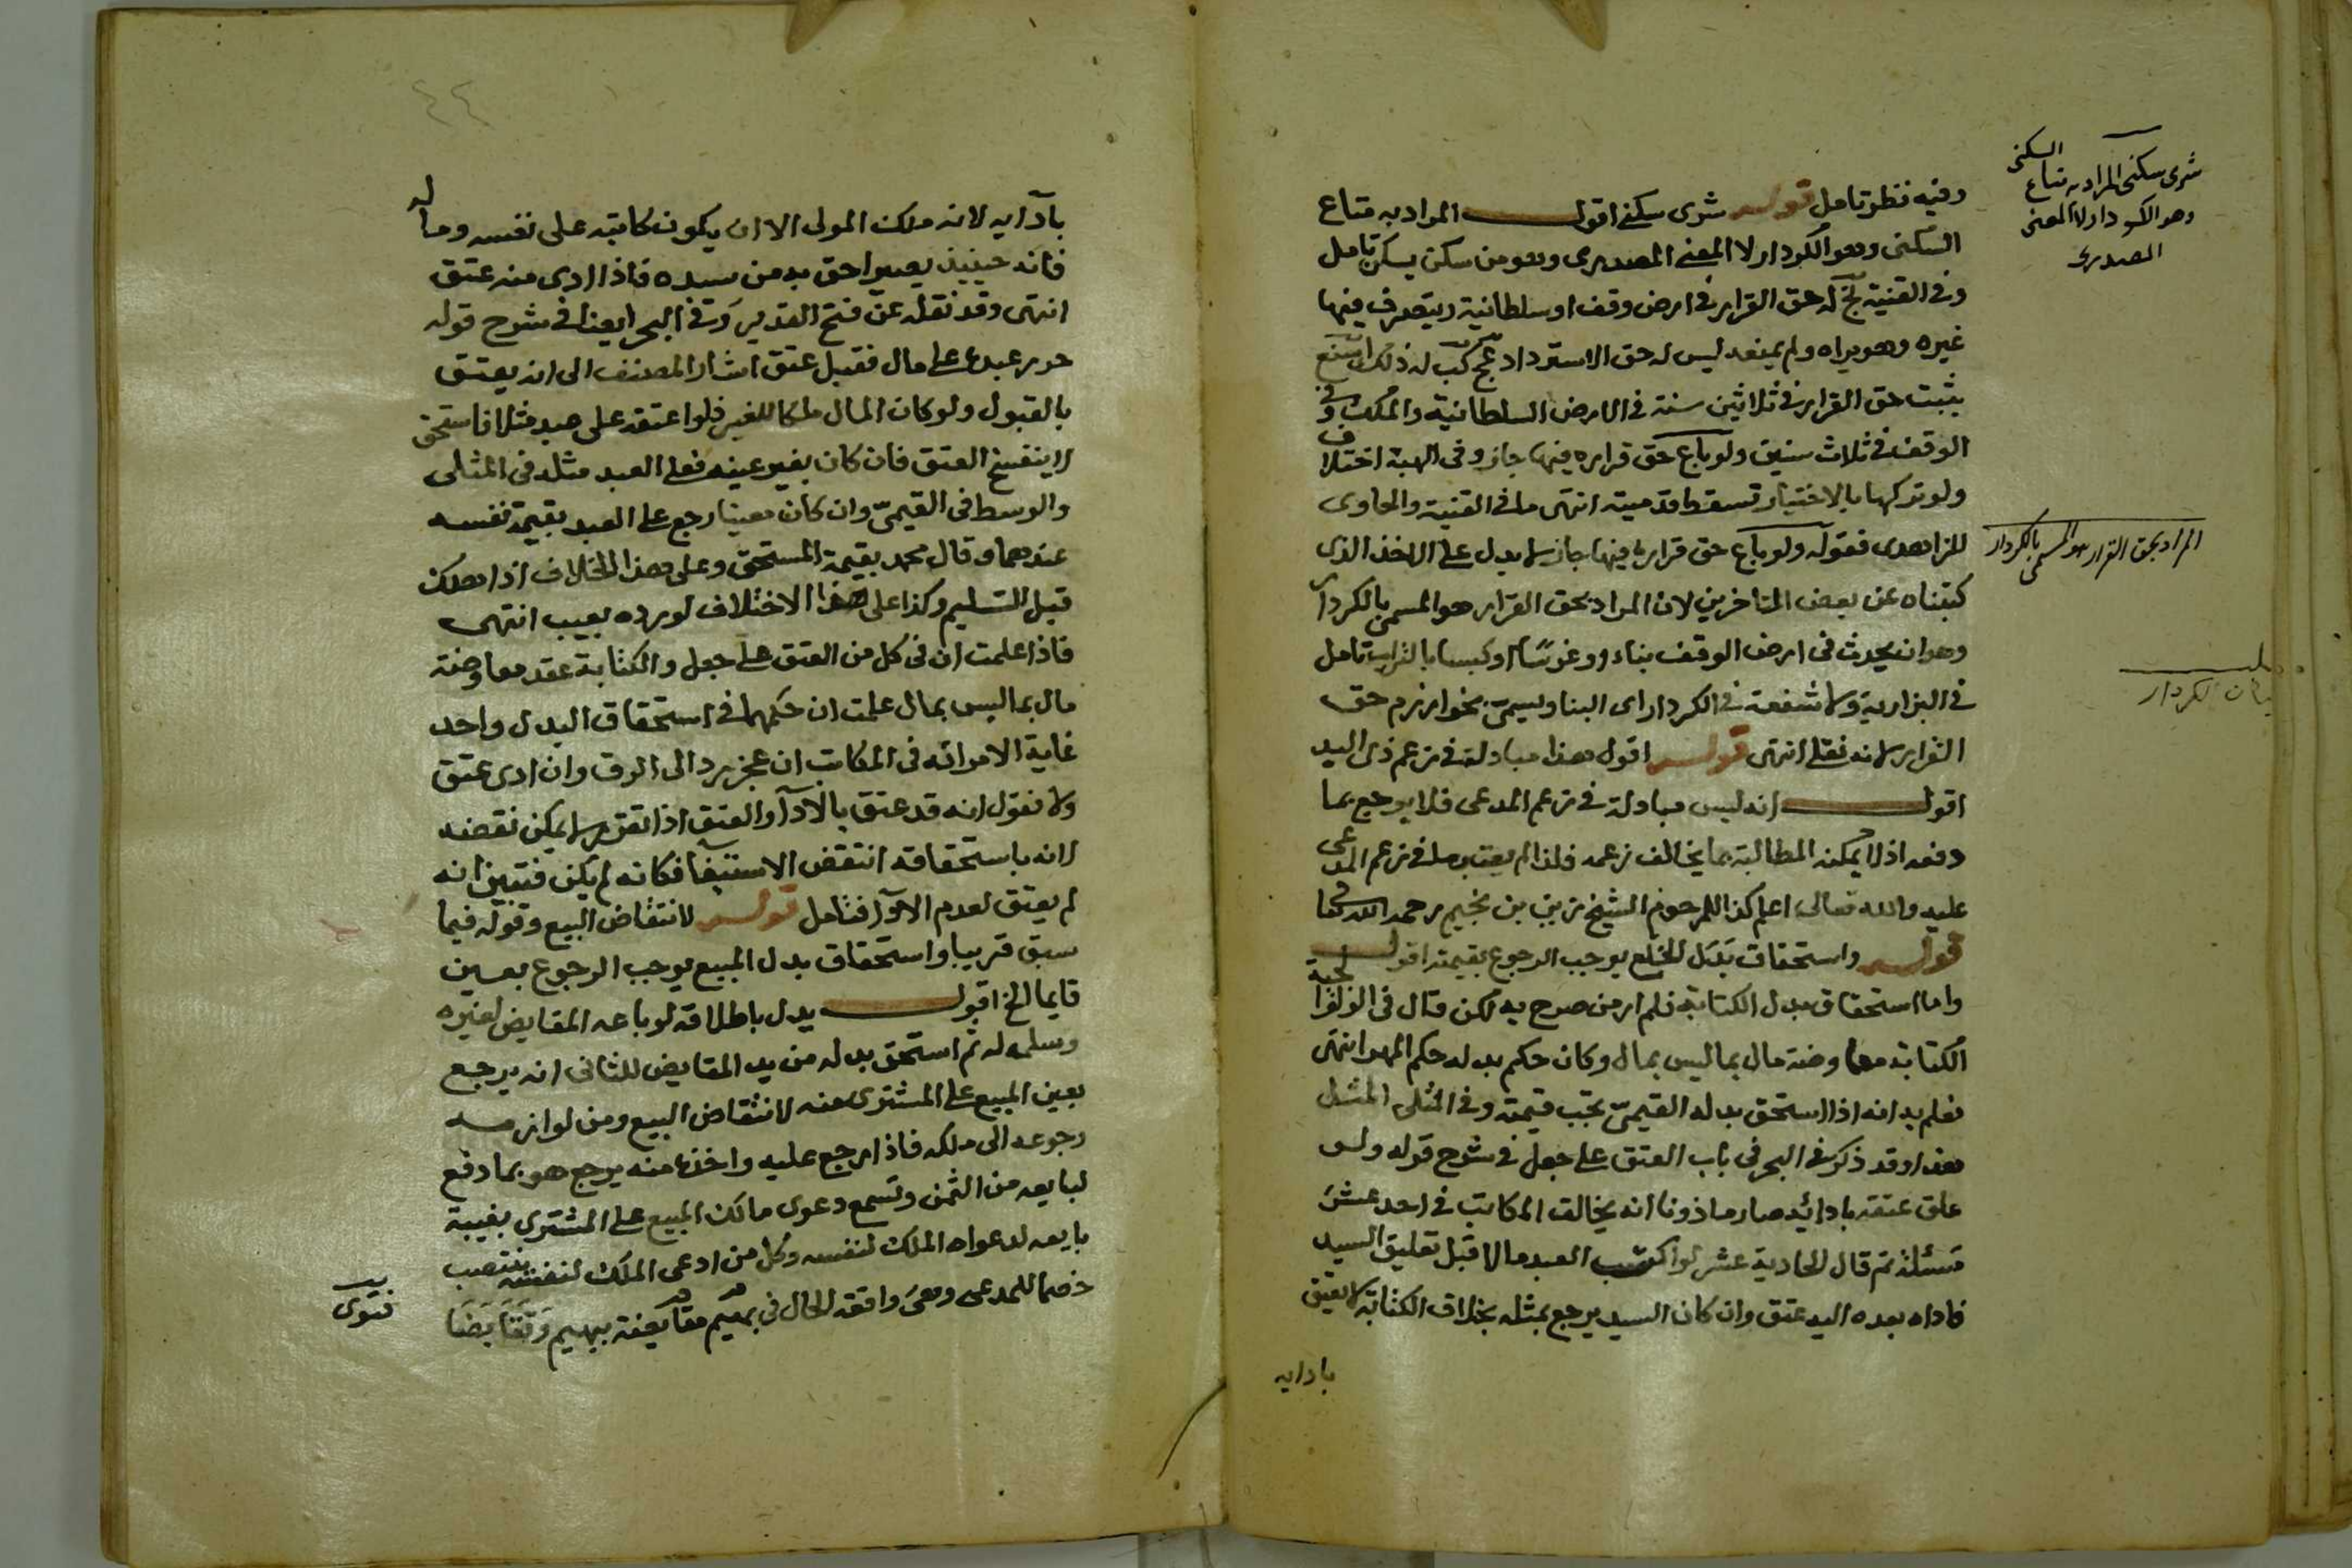 وفيه نظر تامل قوله شرى سكنى اقول المراد به متاع
السكنى وهو الكردار لا المعنى المصدرى وهو من سكن يسكن تامل
وفى القنية له حق القرار فى ارض وقف او سلطانية ويتصرف فيها
غيره وهو يراه ولم يمنعه ليس له حق الاسترداد له ذلك
يثبت حق القرار فى ثلاثين سنة فى الارض السلطانية والملك وفى
الوقف فى ثلاث سنين ولو باع حق قراره فيها جاز وفى الهبة اختلاف
ولو تركها بالاختيار تسقط قدميته انتهى ما فى القنية والحاوى
للزاهدى فقوله ولو باع حق قراره فيها جاز لا يدل على الاخذ الذى
كتبناه عن بعض المتاخرين لان المراد بحق القرار هو المسمى بالكردار
وهو ان يحدث فى ارض الوقف بناء او غرسا او كبسا بالتراب تامل
فى البزازية ولا شفعة فى الكردار اى البنا ويسمى بخوارزم حق
القرار لانه نقلى انتهى قوله اقول هذا مبادلة فى زعم ذى اليد
اقول انه ليس مبادلة فى زعم المدعى فلا يرجع بما
دفعه اذ لا يمكنه المطالبة بما يخالف زعمه فلذا لم يعتبر ما فى زعم المدعى
عليه والله تعالى اعلم كذا للمرحوم الشيخ زين بن نجيم رحمه الله تعالى
قوله واستحقاق بدل الخلع يوجب الرجوع بقيمته اقول
واما استحقاق بدل الكتابة فلم ار من صرح به لكن قال فى الولوالجية
الكتابة معاوضة مال بما ليس بمال وكان حكم بدله حكم المهر انتهى
فعلم به انه اذا استحق بدله القيمى تجب قيمته وفى المثلى المثل
هذا وقد ذكر فى البحر فى باب العتق على جعل فى شرح قوله ولو
علق عتقه بادائه صار ماذونا انه يخالف المكاتب فى احد عشر
مسئلة ثم قال الحادية عشر لو اكتسب العبد مالا قبل تعليق السيد
فاداه بعده اليه عتق وان كان السيد يرجع بمثله بخلاف الكتابة لا يعتق
بادايه
شرى سكنى المراد به متاع السكنى
وهو الكردار لا المعنى
المصدرى
المراد بحق القرار هو المسمى بالكردار
الكردار
٤٤
بادايه لانه ملك المولى الا ان يكون كاتبه على نفسه وماله
فانه حينيذ يصير احق به من سيده فاذا ادى منه عتق
انتهى وقد نقله عن فتح القدير وفى البحر ايضا فى شرح قوله
حرر عبده على مال فقبل عتق اشار المصنف الى انه يعتق
بالقبول ولو كان المال ملكا للغير فلو اعتقه على عبد مثلا فاستحق
لا ينفسخ العتق فان كان بغير عينه فعلى العبد مثله فى المثلى
والوسط فى القيمى وان كان معينا رجع على العبد بقيمة نفسه
عندهما وقال محمد بقيمة المستحق وعلى هذا الخلاف اذا هلك
قبل التسليم وكذا على هذا الاختلاف لو رده بعيب انتهى
فاذا علمت ان فى كل من العتق على جعل والكتابة عقد معاوضة
مال بما ليس بمال علمت ان حكمهما فى استحقاق البدل واحد
غاية الامر انه فى المكاتب ان عجز يرد الى الرق وان ادى عتق
ولا نقول انه قد عتق بالادآ والعتق اذا تقرر لا يمكن نقضه
لانه باستحقاقه انتقض الاستيفا فكانه لم يكن فتبين انه
لم يعتق لعدم الادآ فتامل قوله لانتقاض البيع وقوله فيما
سبق قريبا واستحقاق بدل المبيع يوجب الرجوع بعين
قايما الخ اقول يدل باطلاقه لو باعه المقايض لغيره
وسلمه له ثم استحق بدله من يد المقايض للثانى انه يرجع
بعين المبيع على المشترى منه لانتقاض البيع ومن لوازمه
رجوعه الى ملكه فاذا رجع عليه واخذه منه يرجع هو بما دفع
لبايعه من الثمن وتسمع دعوى مالك المبيع على المشترى بغيبة
بايعه لدعواه الملك لنفسه وكل من ادعى الملك لنفسه ينتصب
خصما للمدعى وهى واقعة الحال فى بهيم مقايضة ببهيم وتقايضا
فتوى